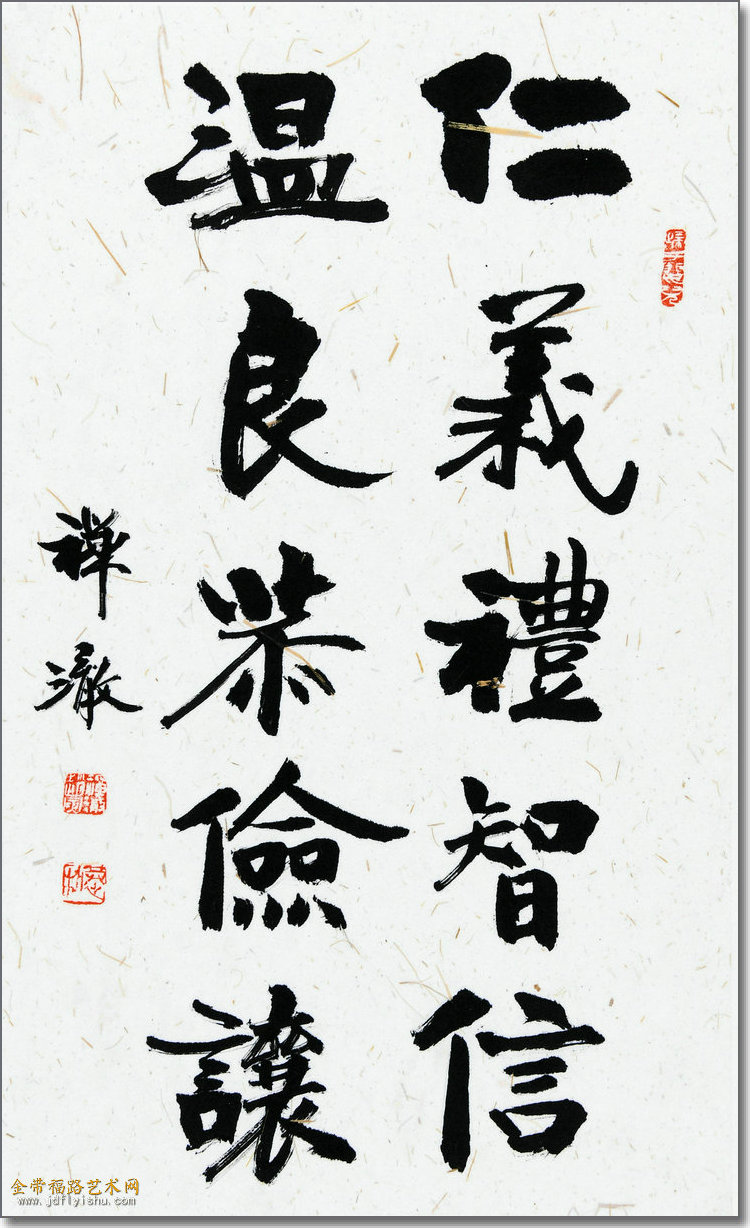 仁義禮智信
温良恭儉讓
禅澈
金带福路艺术网
www.jdflyishu.com